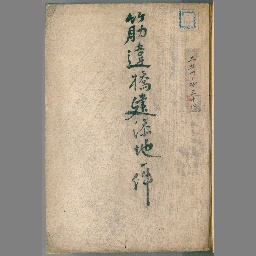 筋違橋建添地一件